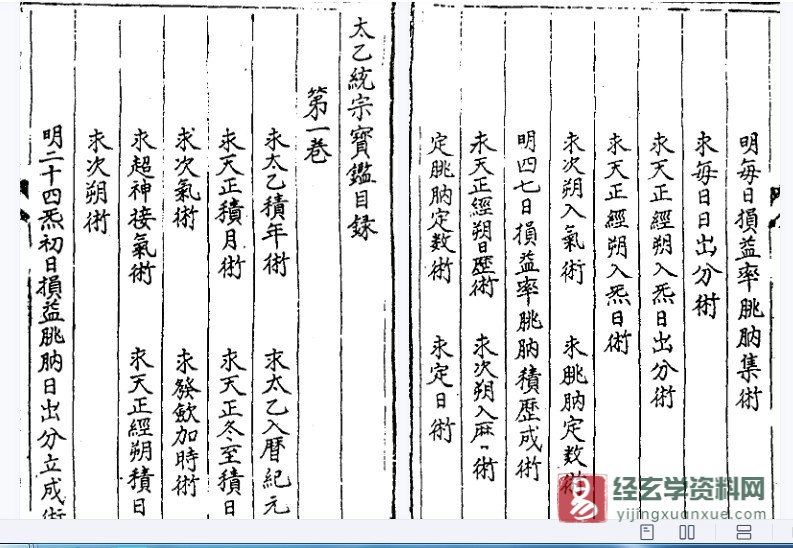 太乙統宗寶鑑目録
第一卷
求太乙積年術　求太乙入曆紀元
求天正積月術　求天正冬至積日
求次氣術　求發歛加時術
求超神接氣術　求天正經朔積日
求次朔術
明二十四炁初日損益朓朒日出分立成術
明每日損益率朓朒集術
求每日日出分術
求天正經朔入炁日出分術
求天正經朔入炁日術
求次朔入氣術　求朓朒定数術
明四七日損益率朓朒積歴成術
求天正經朔日歴術　求次朔入術
定朓朒定数術　求定日術
易
经玄学资料网
yijingxuanxue.com